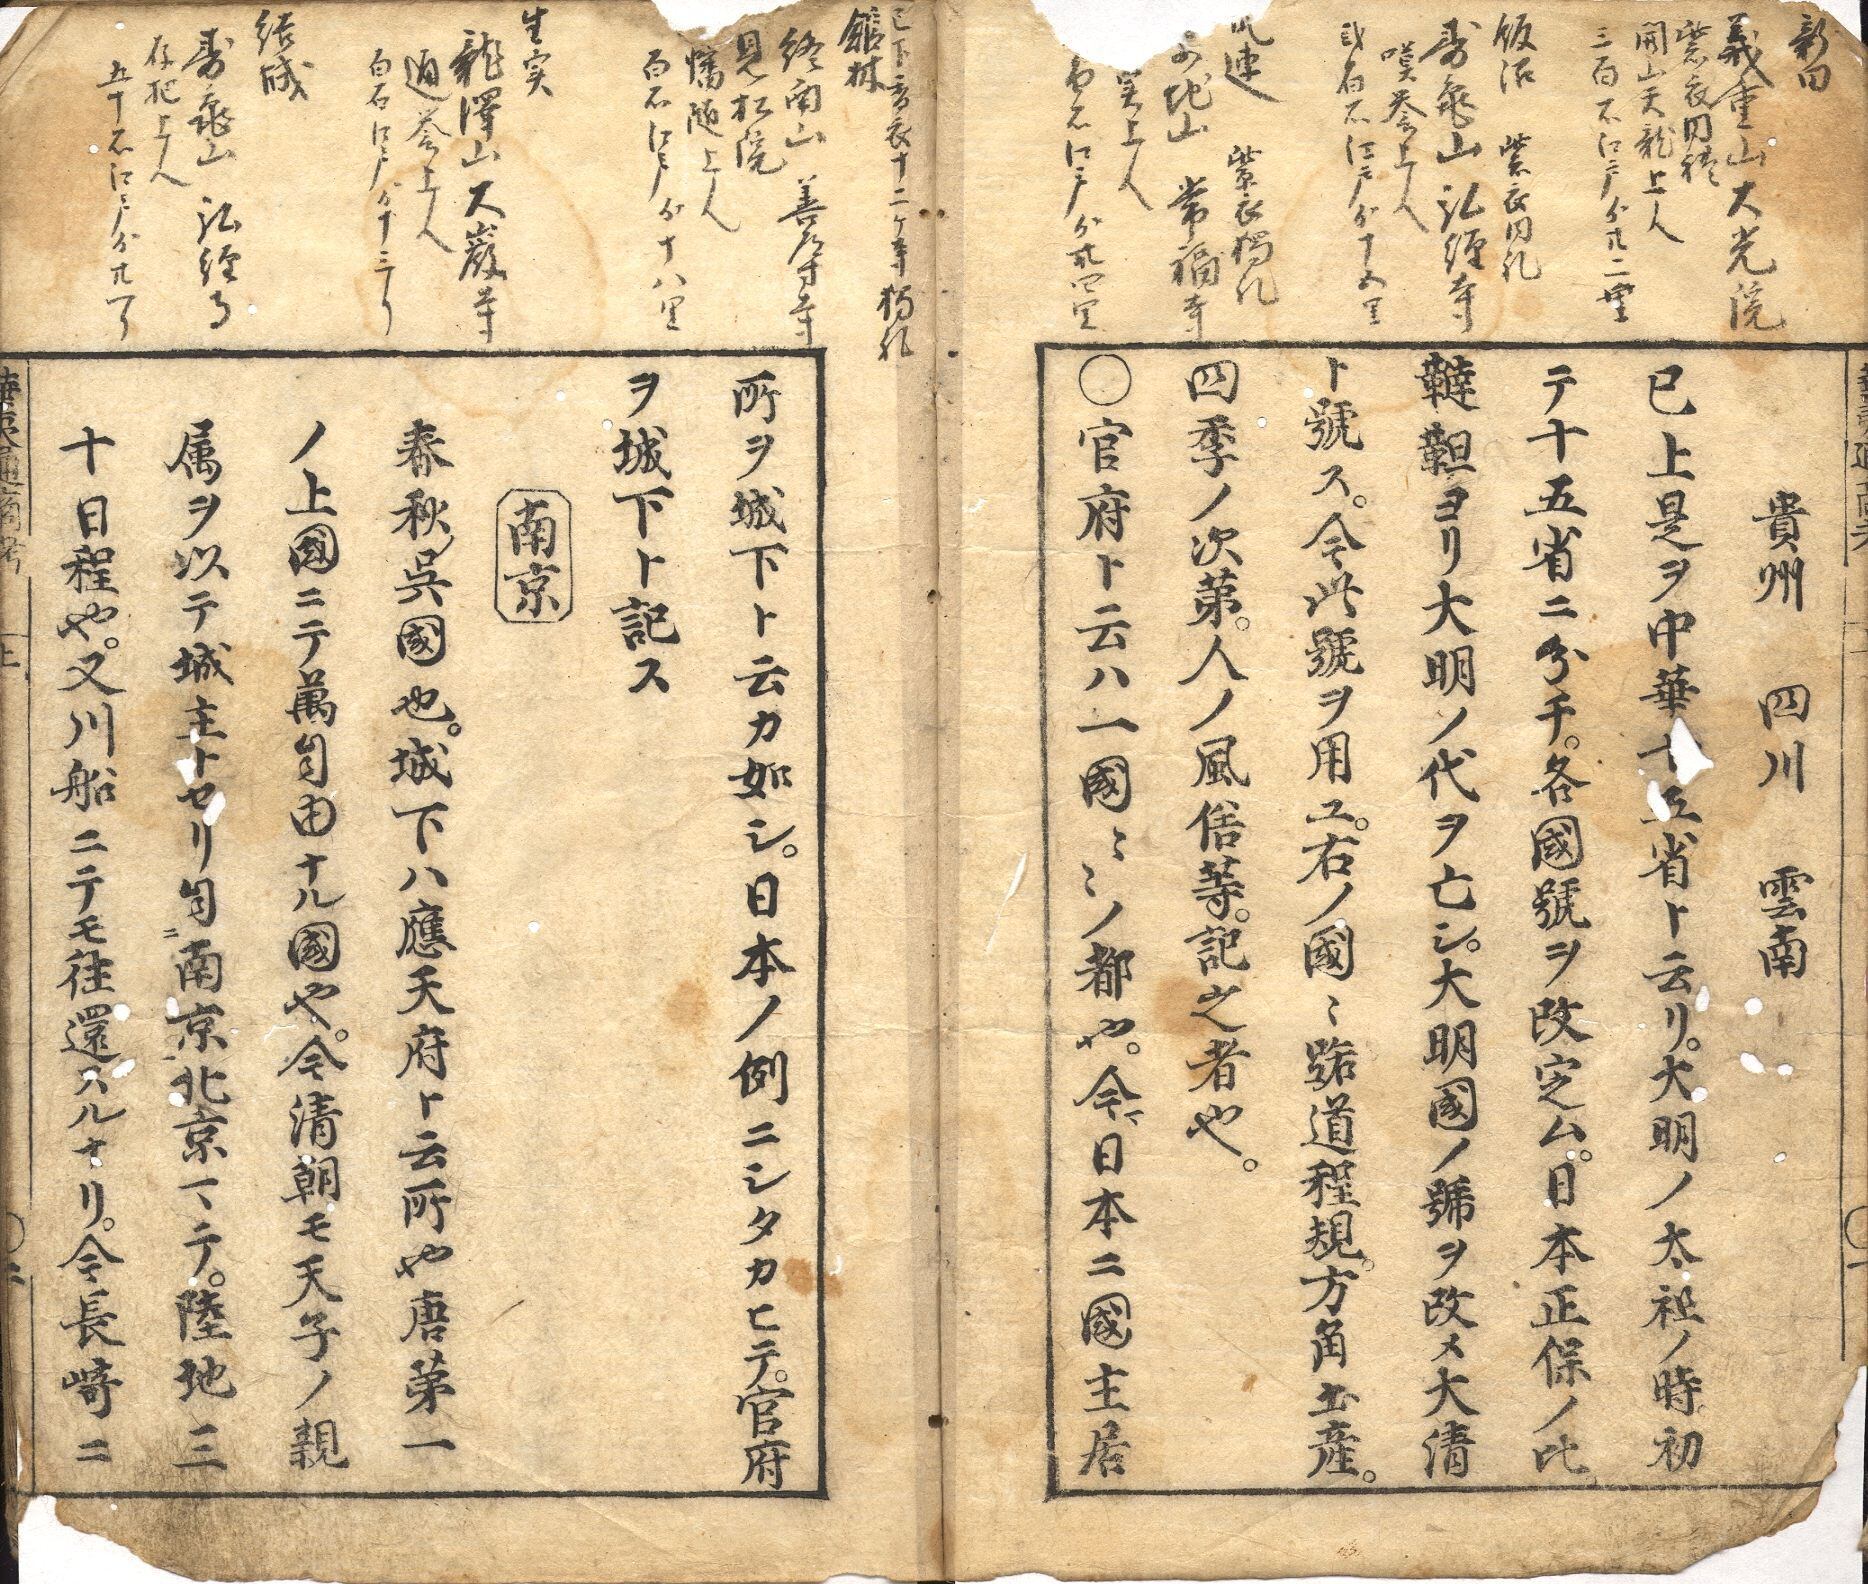 新田
義重山大光院
紫衣
開山天龍上人
三百石江戸ゟ廿二里
飯沼 紫衣独礼
寿亀山弘経寺
嘆誉上人
百石江戸ゟ十五里
紫衣独礼
山 常福寺
上人
百石江戸ゟ廿四里
貴州 四川 雲南
已上是ヲ中華十五省ト云リ。大明ノ太祖ノ時初
テ十五省ニ分チ。各國號ヲ改定ム。日本正保ノ比
韃靼ヨリ大明ノ代ヲ亡シ。大明國ノ號ヲ改メ大清
ト號ス。今此號ヲ用ユ。右ノ國〻路道程規。方角土産。
四季ノ次第。人ノ風俗等。記之者也。
〇官府ト云ハ一國〻〻ノ都也。今日本ニ國主居
已下 十二ケ寺独礼
館林
終南山 善導寺
見松院
幡随上人
百石江戸ゟ十八里
生実
龍澤山大巌寺
道誉上人
百石江戸ゟ十三り
結城
寿亀山 弘経寺
存把上人
五十石江戸ゟ廿一り
所ヲ城下ト云カ如シ。日本ノ例ニシタカヒテ。官府
ヲ城下ト記ス
南京
春秋ノ呉國也。城下ハ應天府ト云所也唐第一
ノ上國ニテ萬自由ナル國也。今清朝モ天子ノ親
属ヲ以テ城主トセリ自南京北京マテ。陸地三
十日程也。又川船ニテモ往還スルナリ。今長崎ニ
華夷通商考
上